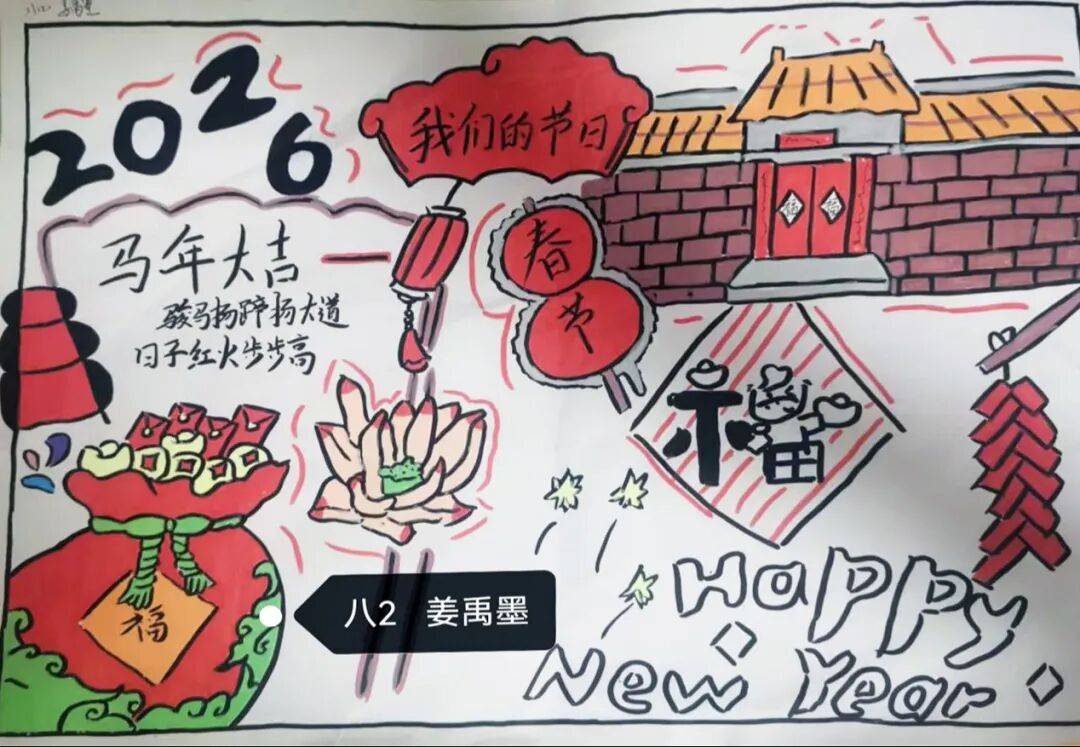 2026
我们的节日
春
节
马年大吉
骏马扬蹄扬大道
日子红火步步高
福
福
福
福
八2 姜禹墨
Happy
New Year